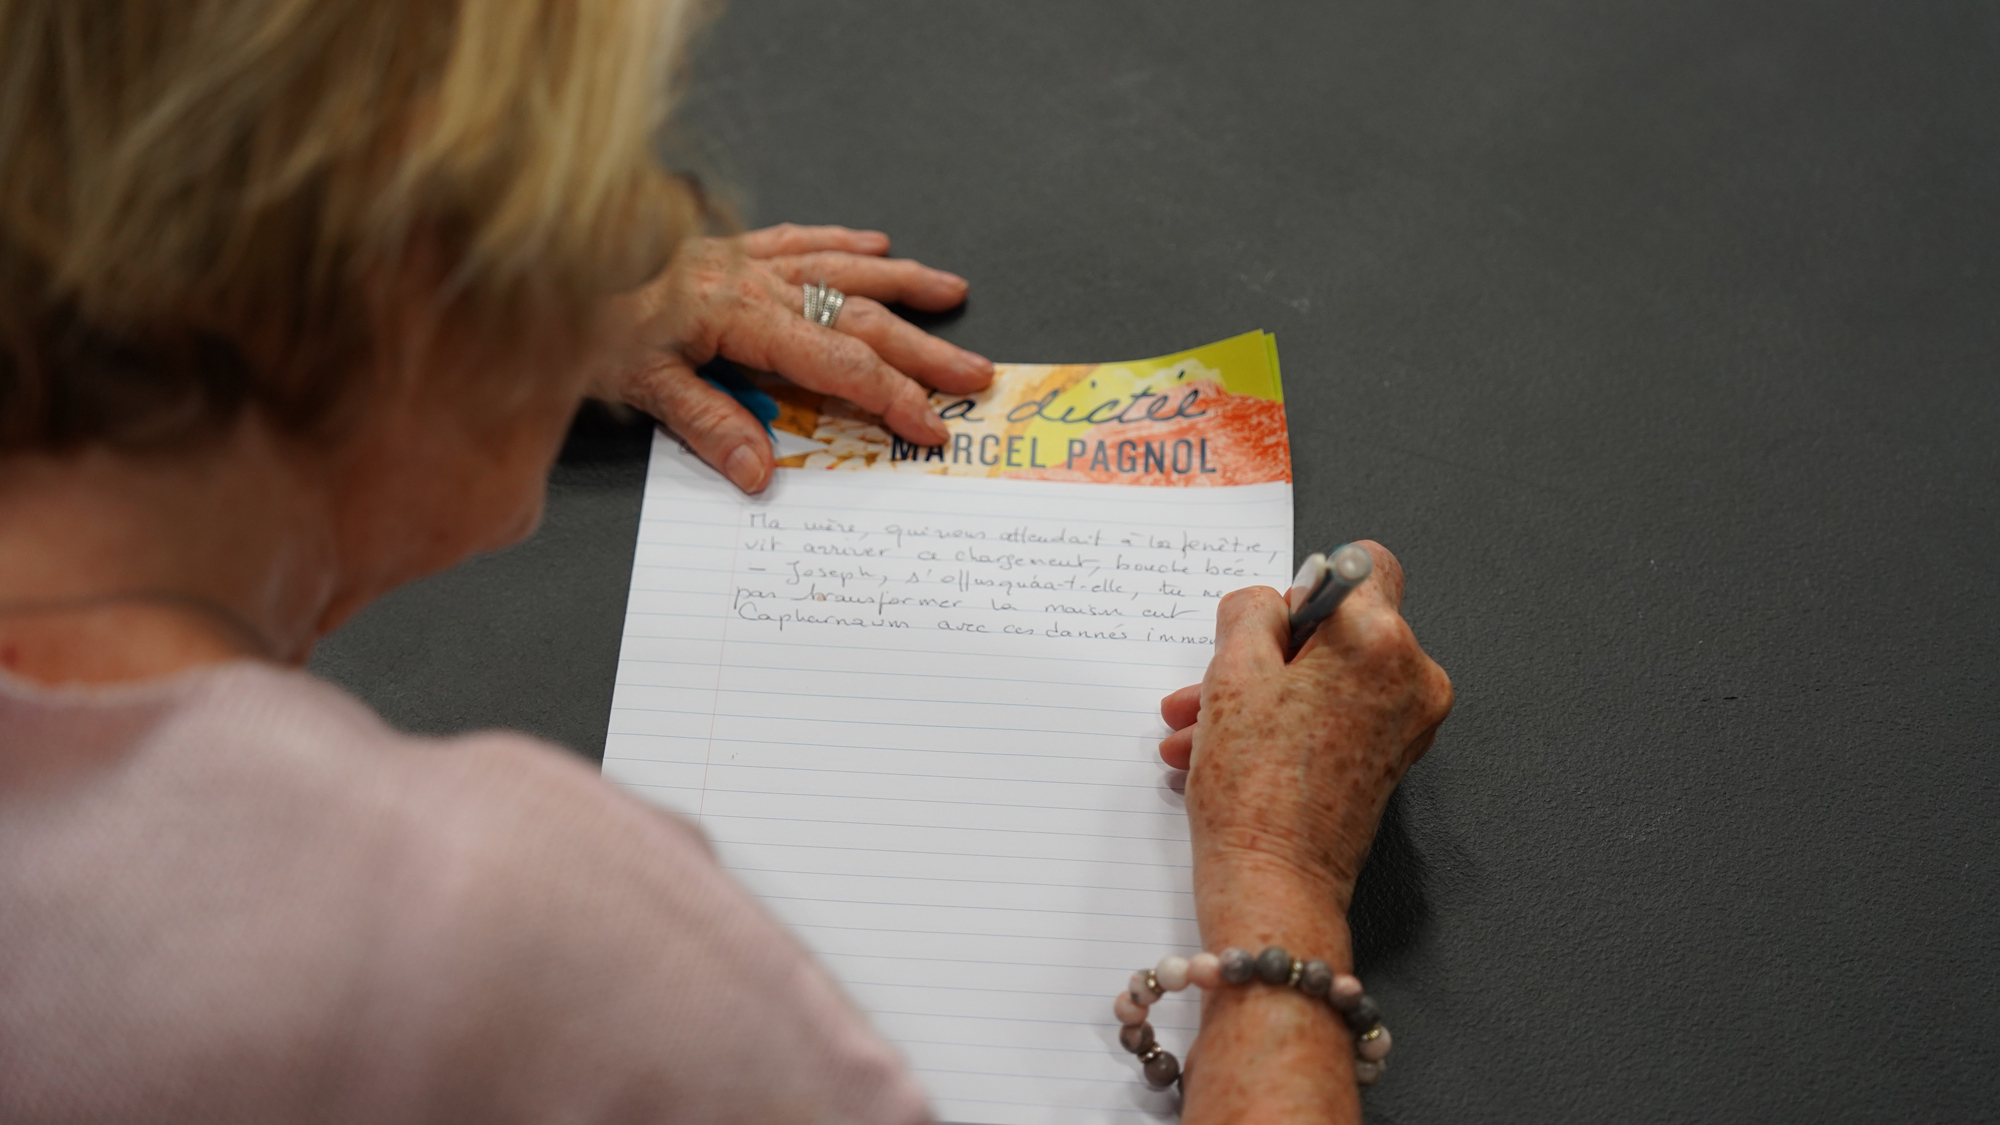 la dictée
MARCEL PAGNOL
Ma mère, qui nous attendait à la fenêtre,
vit arriver ce chargement, bouche bée.
– Joseph, s'offusquáa-t-elle, tu ne
pas transformer la maison en
Capharnaüm avec ces damnés